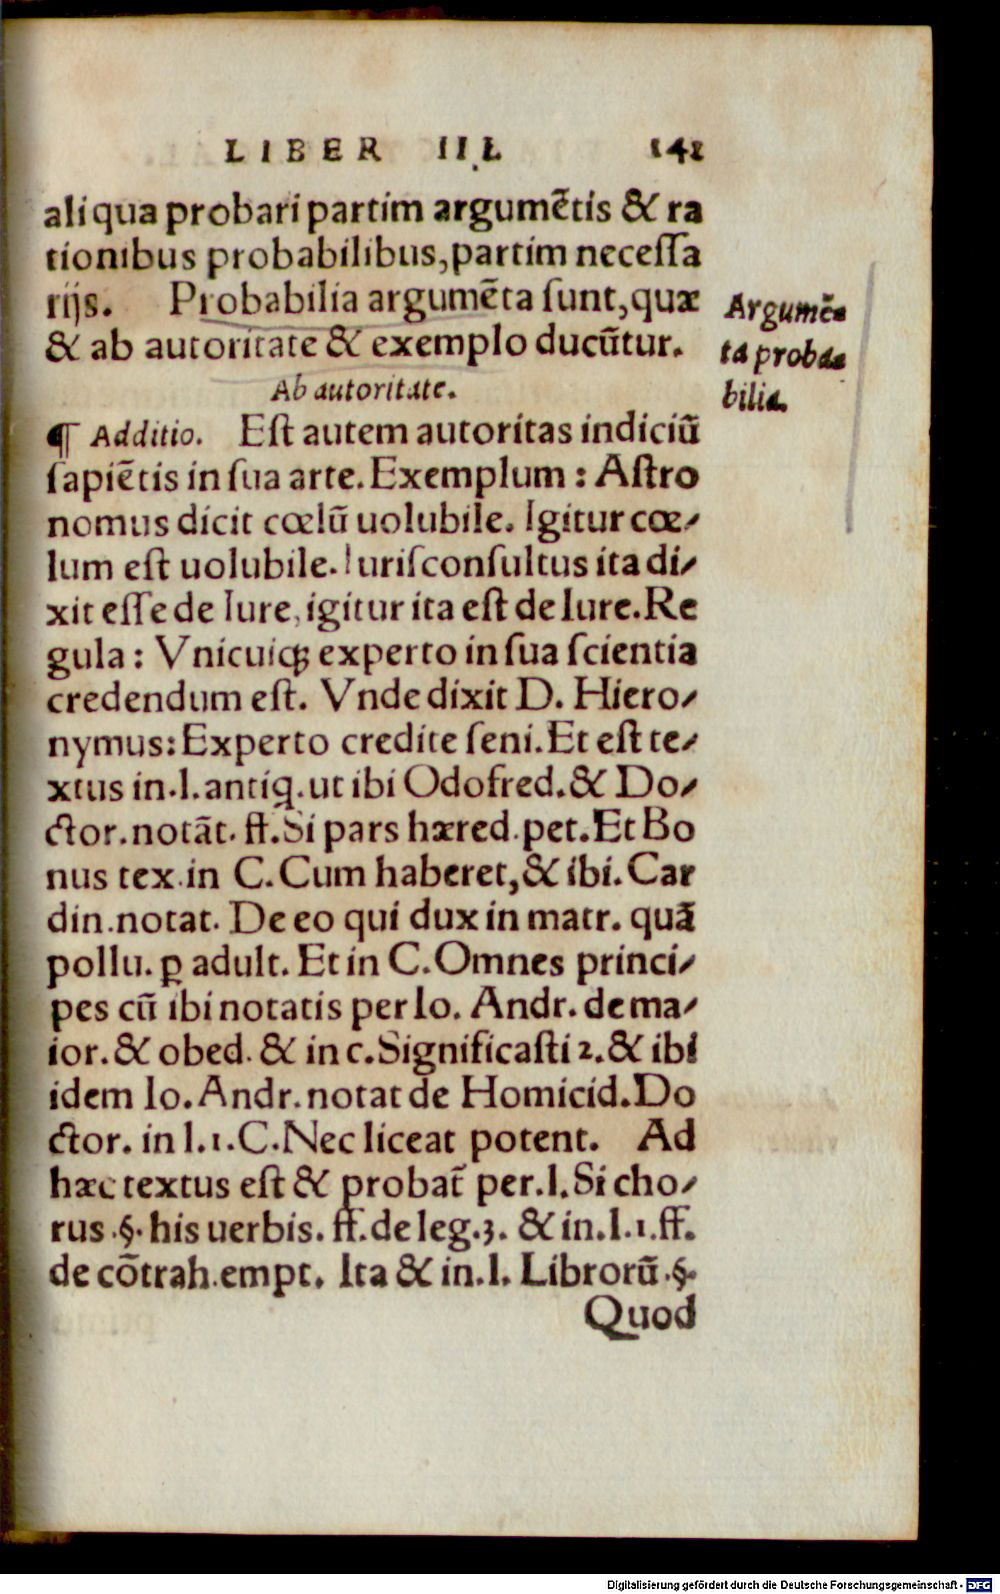 LIBER III. 141
aliqua probari partim argumẽtis & ra
tionibus probabilibus, partim neceſſa
rijs. Probabilia argumẽta ſunt, quæ
& ab autoritate & exemplo ducũtur.
Argumẽ⸗
ta proba⸗
bilia.
Ab autoritate.
¶ Additio. Eſt autem autoritas indiciũ
ſapiẽtis in ſua arte. Exemplum: Aſtro
nomus dicit cœlũ uolubile. Igitur cœ⸗
lum eſt uolubile. Iuriſconſultus ita di⸗
xit eſſe de Iure, igitur ita eſt de Iure. Re
gula: Vnicuiq; experto in ſua ſcientia
credendum eſt. Vnde dixit D. Hiero⸗
nymus: Experto credite ſeni. Et eſt te⸗
xtus in.l.antiq.ut ibi Odofred.& Do⸗
ctor.notãt. ff.Si pars hæred.pet.Et Bo
nus tex.in C.Cum haberet,& ibi.Car
din.notat. De eo qui dux in matr. quã
pollu. ꝑ adult. Et in C.Omnes princi⸗
pes cũ ibi notatis per Io. Andr. de ma⸗
ior.& obed. & in c.Significaſti 2.& ibi
idem Io. Andr. notat de Homicid. Do
ctor. in l.1.C.Nec liceat potent. Ad
hæc textus eſt & probat̃ per.l.Si cho⸗
rus.§.his uerbis. ff.de leg.3. & in.l.1.ff.
de cõtrah.empt. Ita & in.l. Librorũ.§.
Quod
Digitalisierung gefördert durch die Deutsche Forschungsgemeinschaft - DFG